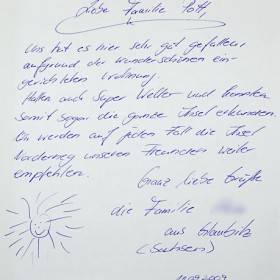 Liebe Familie Pott,
Uns hat es hier sehr gut gefallen
aufgrund der wunderschönen ein-
gerichteten Wohnung.
Hatten auch Super Wetter und konnten
somit sogar die ganze Insel erkunden.
Wir werden auf jeden Fall die Insel
Norderney unseren Freunden weiter
empfehlen.
Ganz liebe Grüße
die Familie
aus Glaubitz
(Sachsen)